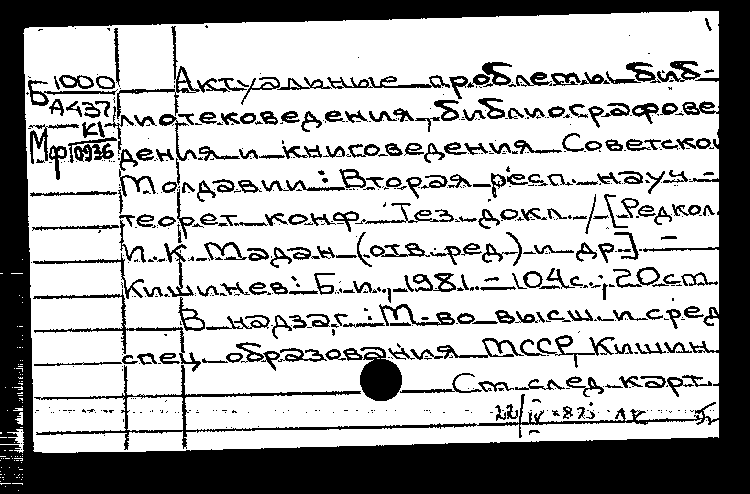 1
Б1000 Актуальные проблемы биб-
А437 лиотековедения, библиографове
К1
Мф10936 дения и книговедения Советской
Молдавии: Вторая респ. науч.-
теорет. конф. Тез. докл. / [Редкол.
И.К. Мадан (отв. ред.) и др.] –
Кишинев: Б.и., 1981. – 104с.; 20см.
В надзаг.: М-во высш. и сред
спец. образования МССР, Кишин.
См. след. карт.
22/IV-82